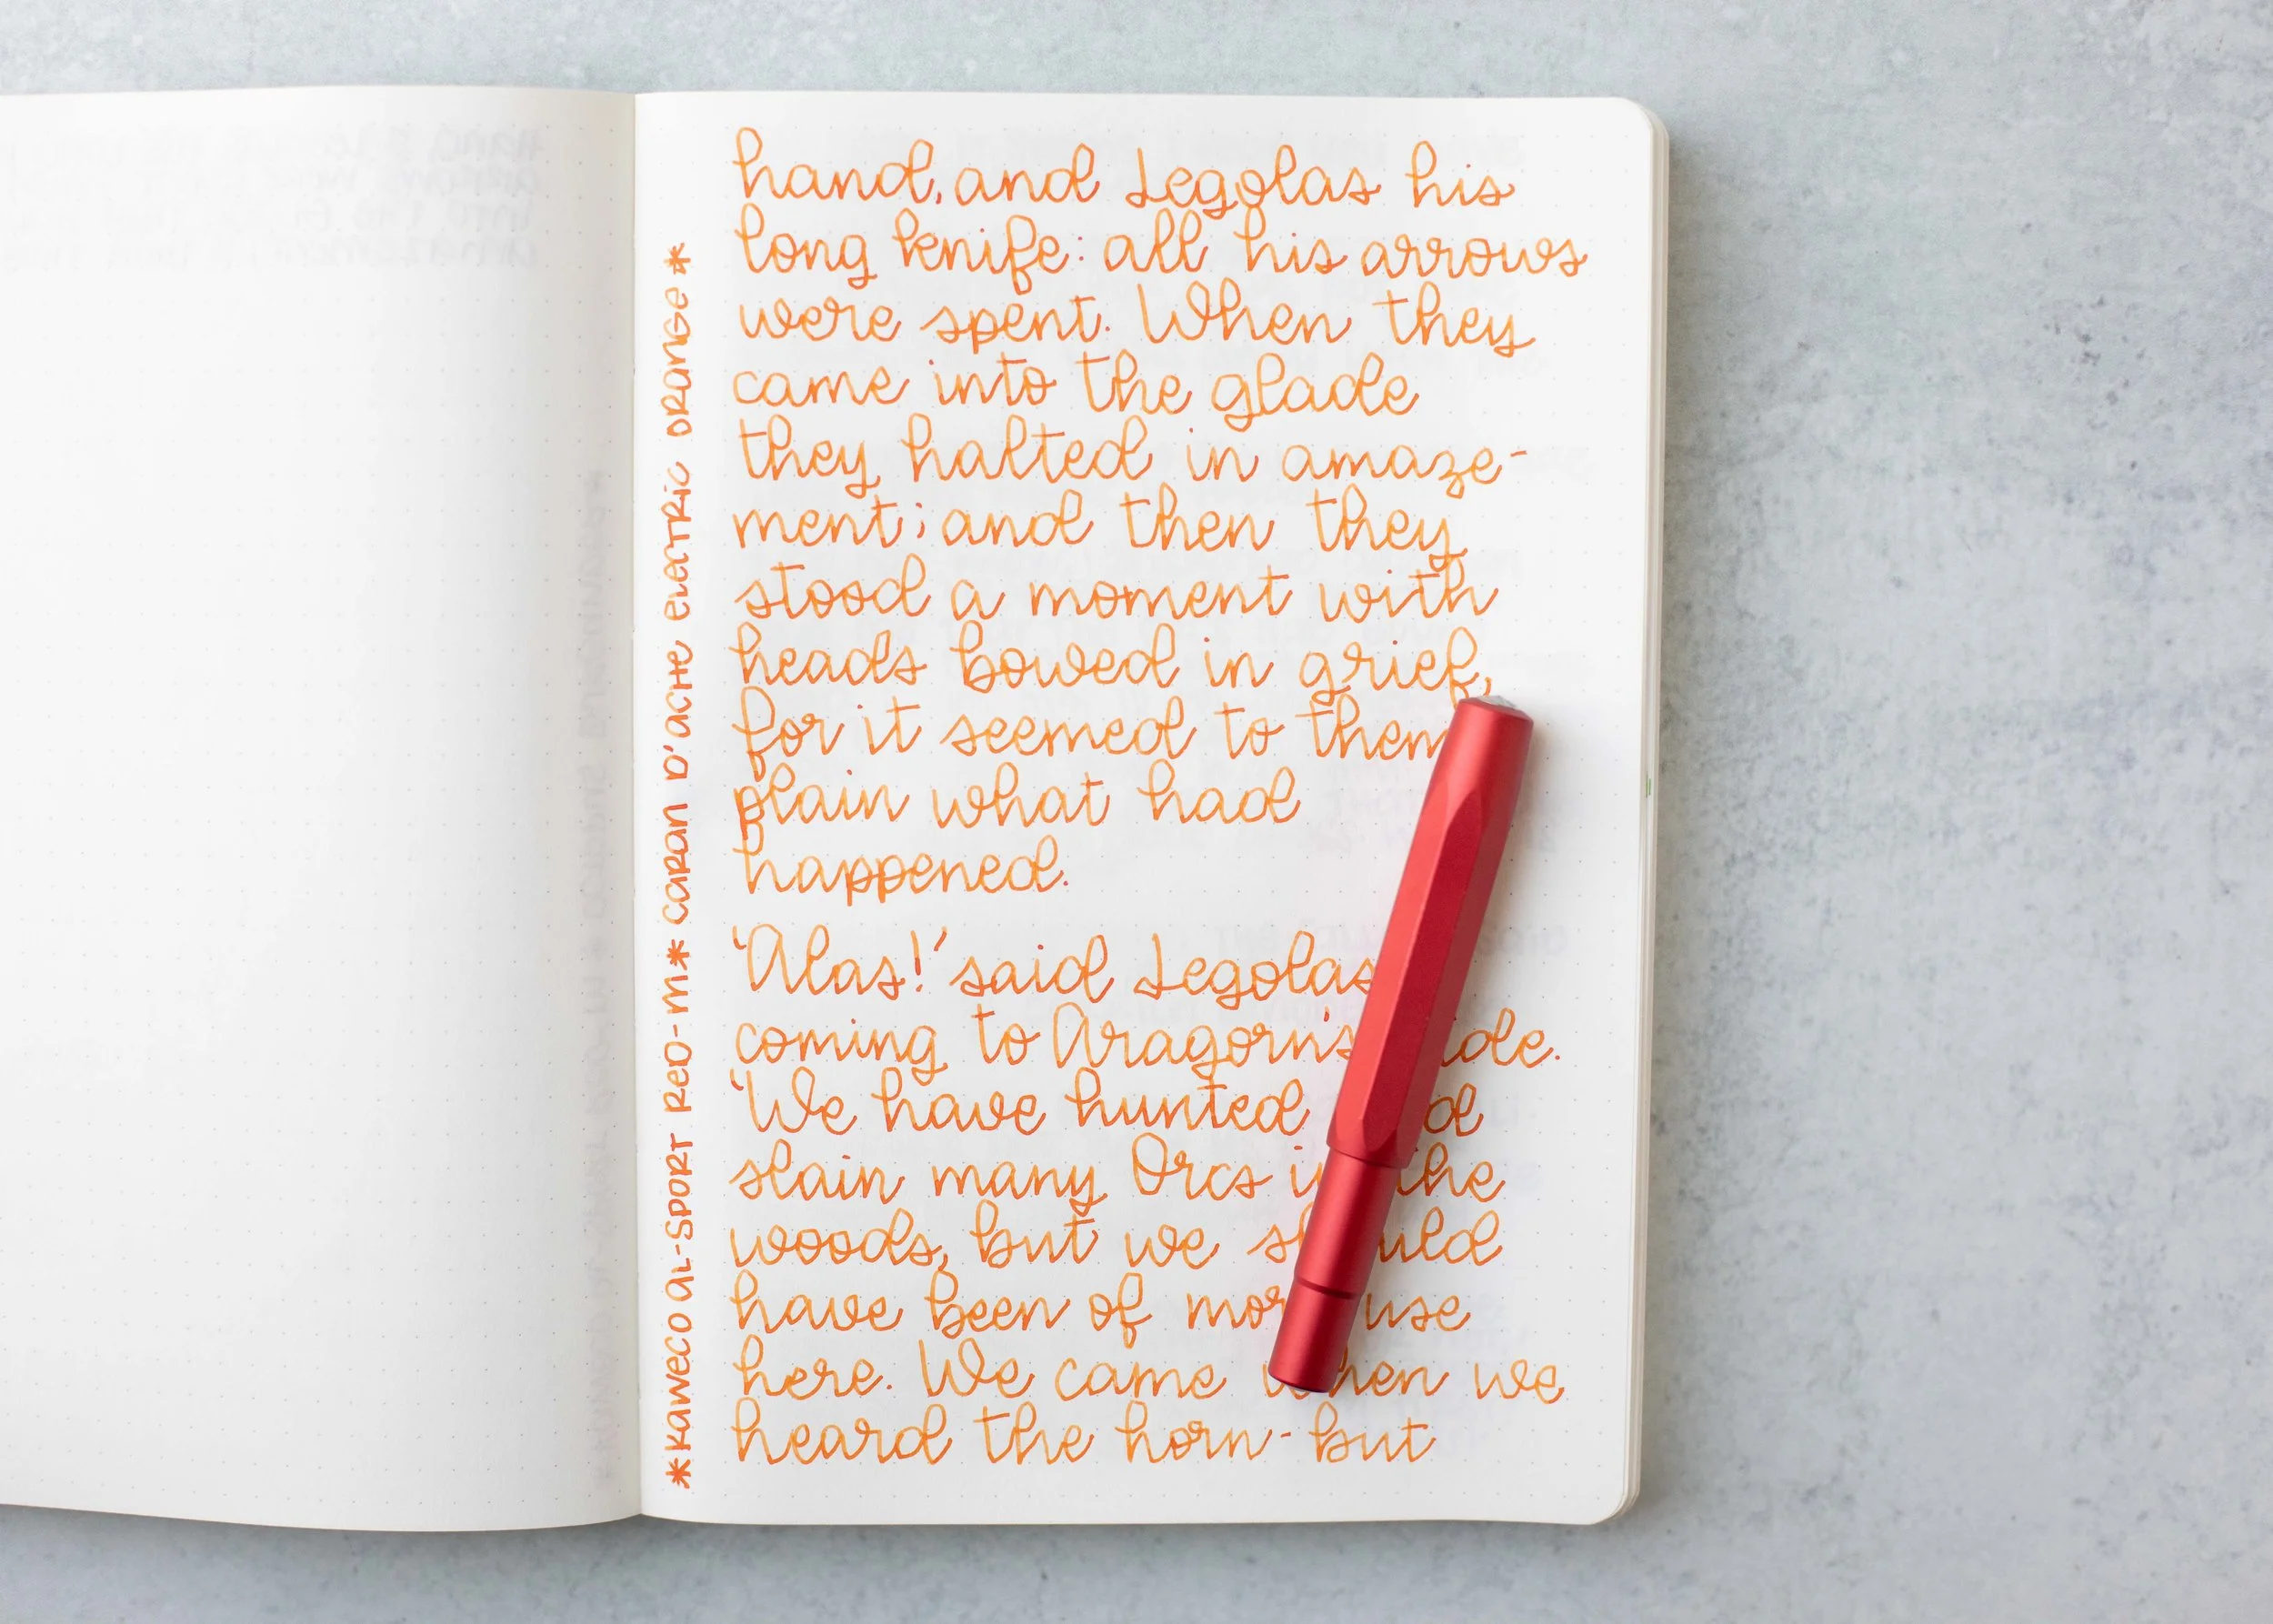 hand, and Legolas his
long knife: all his arrows
were spent. When they
came into the glade
they halted in amaze-
ment; and then they
stood a moment with
heads bowed in grief,
for it seemed to them
plain what had
happened.
'Alas!' said Legolas
coming to Aragorn's
'We have hunted
slain many Orcs the
woods, but we
have been of use
here. We came when we
heard the horn-but
*KAWECO AL-SPORT RED-M* CARAN D'ACHE ELECTRIC ORANGE*